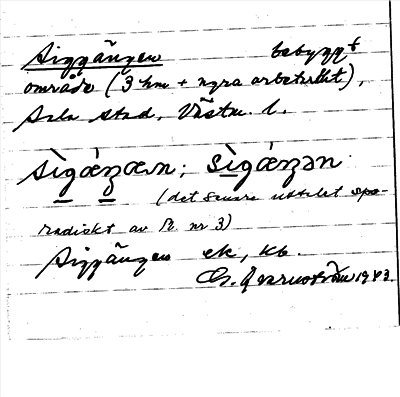 Siggängen bebyggt
område (3 hm + nyra arbetsltht),
Sala stad, Västm. l.
sìgæ̀ŋæn; sìgæŋən
(det senare uttalet spo-
radiskt av M. nr 3)
Siggängen ek, kb.
Gh. Qvarnström 1943.